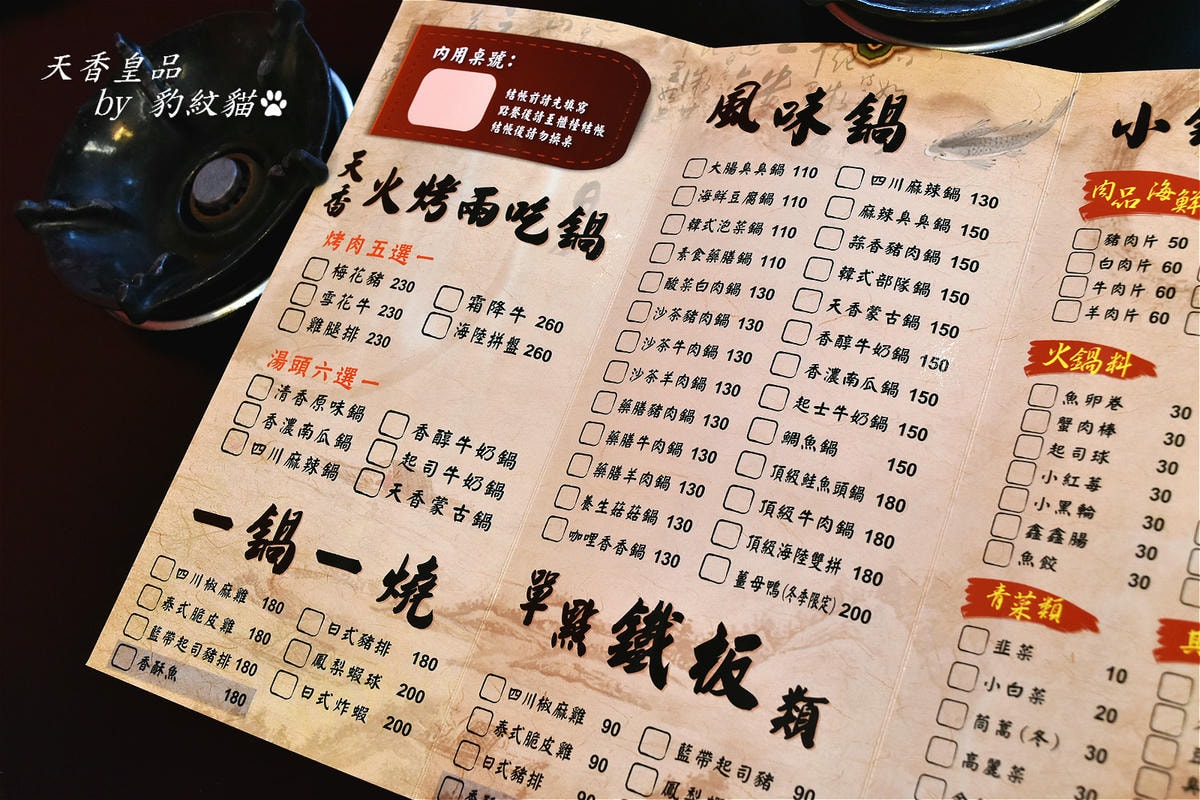 天香皇品
by 豹紋貓
內用桌號：
結帳前請先填寫
點餐後請至櫃檯結帳
結帳後請勿換桌
天香 火烤兩吃鍋
烤肉五選一
梅花豬 230
雪花牛 230
雞腿排 230
霜降牛 260
海陸拼盤 260
湯頭六選一
清香原味鍋
香濃南瓜鍋
四川麻辣鍋
香醇牛奶鍋
起司牛奶鍋
天香蒙古鍋
一鍋一燒
四川椒麻雞 180
泰式脆皮雞 180
藍帶起司豬排 180
香酥魚 180
日式豬排 180
鳳梨蝦球 200
日式炸蝦 200
風味鍋
大腸臭臭鍋 110
海鮮豆腐鍋 110
韓式泡菜鍋 110
素食藥膳鍋 110
酸菜白肉鍋 130
沙茶豬肉鍋 130
沙茶牛肉鍋 130
沙茶羊肉鍋 130
藥膳豬肉鍋 130
藥膳牛肉鍋 130
藥膳羊肉鍋 130
養生菇菇鍋 130
咖哩香香鍋 130
四川麻辣鍋 130
麻辣臭臭鍋 150
蒜香豬肉鍋 150
韓式部隊鍋 150
天香蒙古鍋 150
香醇牛奶鍋 150
香濃南瓜鍋 150
起士牛奶鍋 150
鯛魚鍋 150
頂級鮭魚頭鍋 180
頂級牛肉鍋 180
頂級海陸雙拼 180
薑母鴨(冬季限定) 200
單點鐵板類
四川椒麻雞 90
泰式脆皮雞 90
日式豬排 90
藍帶起司豬 90
鳳梨蝦
小
肉品海鮮
豬肉片 50
白肉片 60
牛肉片 60
羊肉片 60
火鍋料
魚卵卷 30
蟹肉棒 30
起司球 30
小紅莓 30
小黑輪 30
鑫鑫腸 30
魚餃 30
青菜類
韭菜 10
小白菜 20
茼萵(冬) 30
高麗菜 30